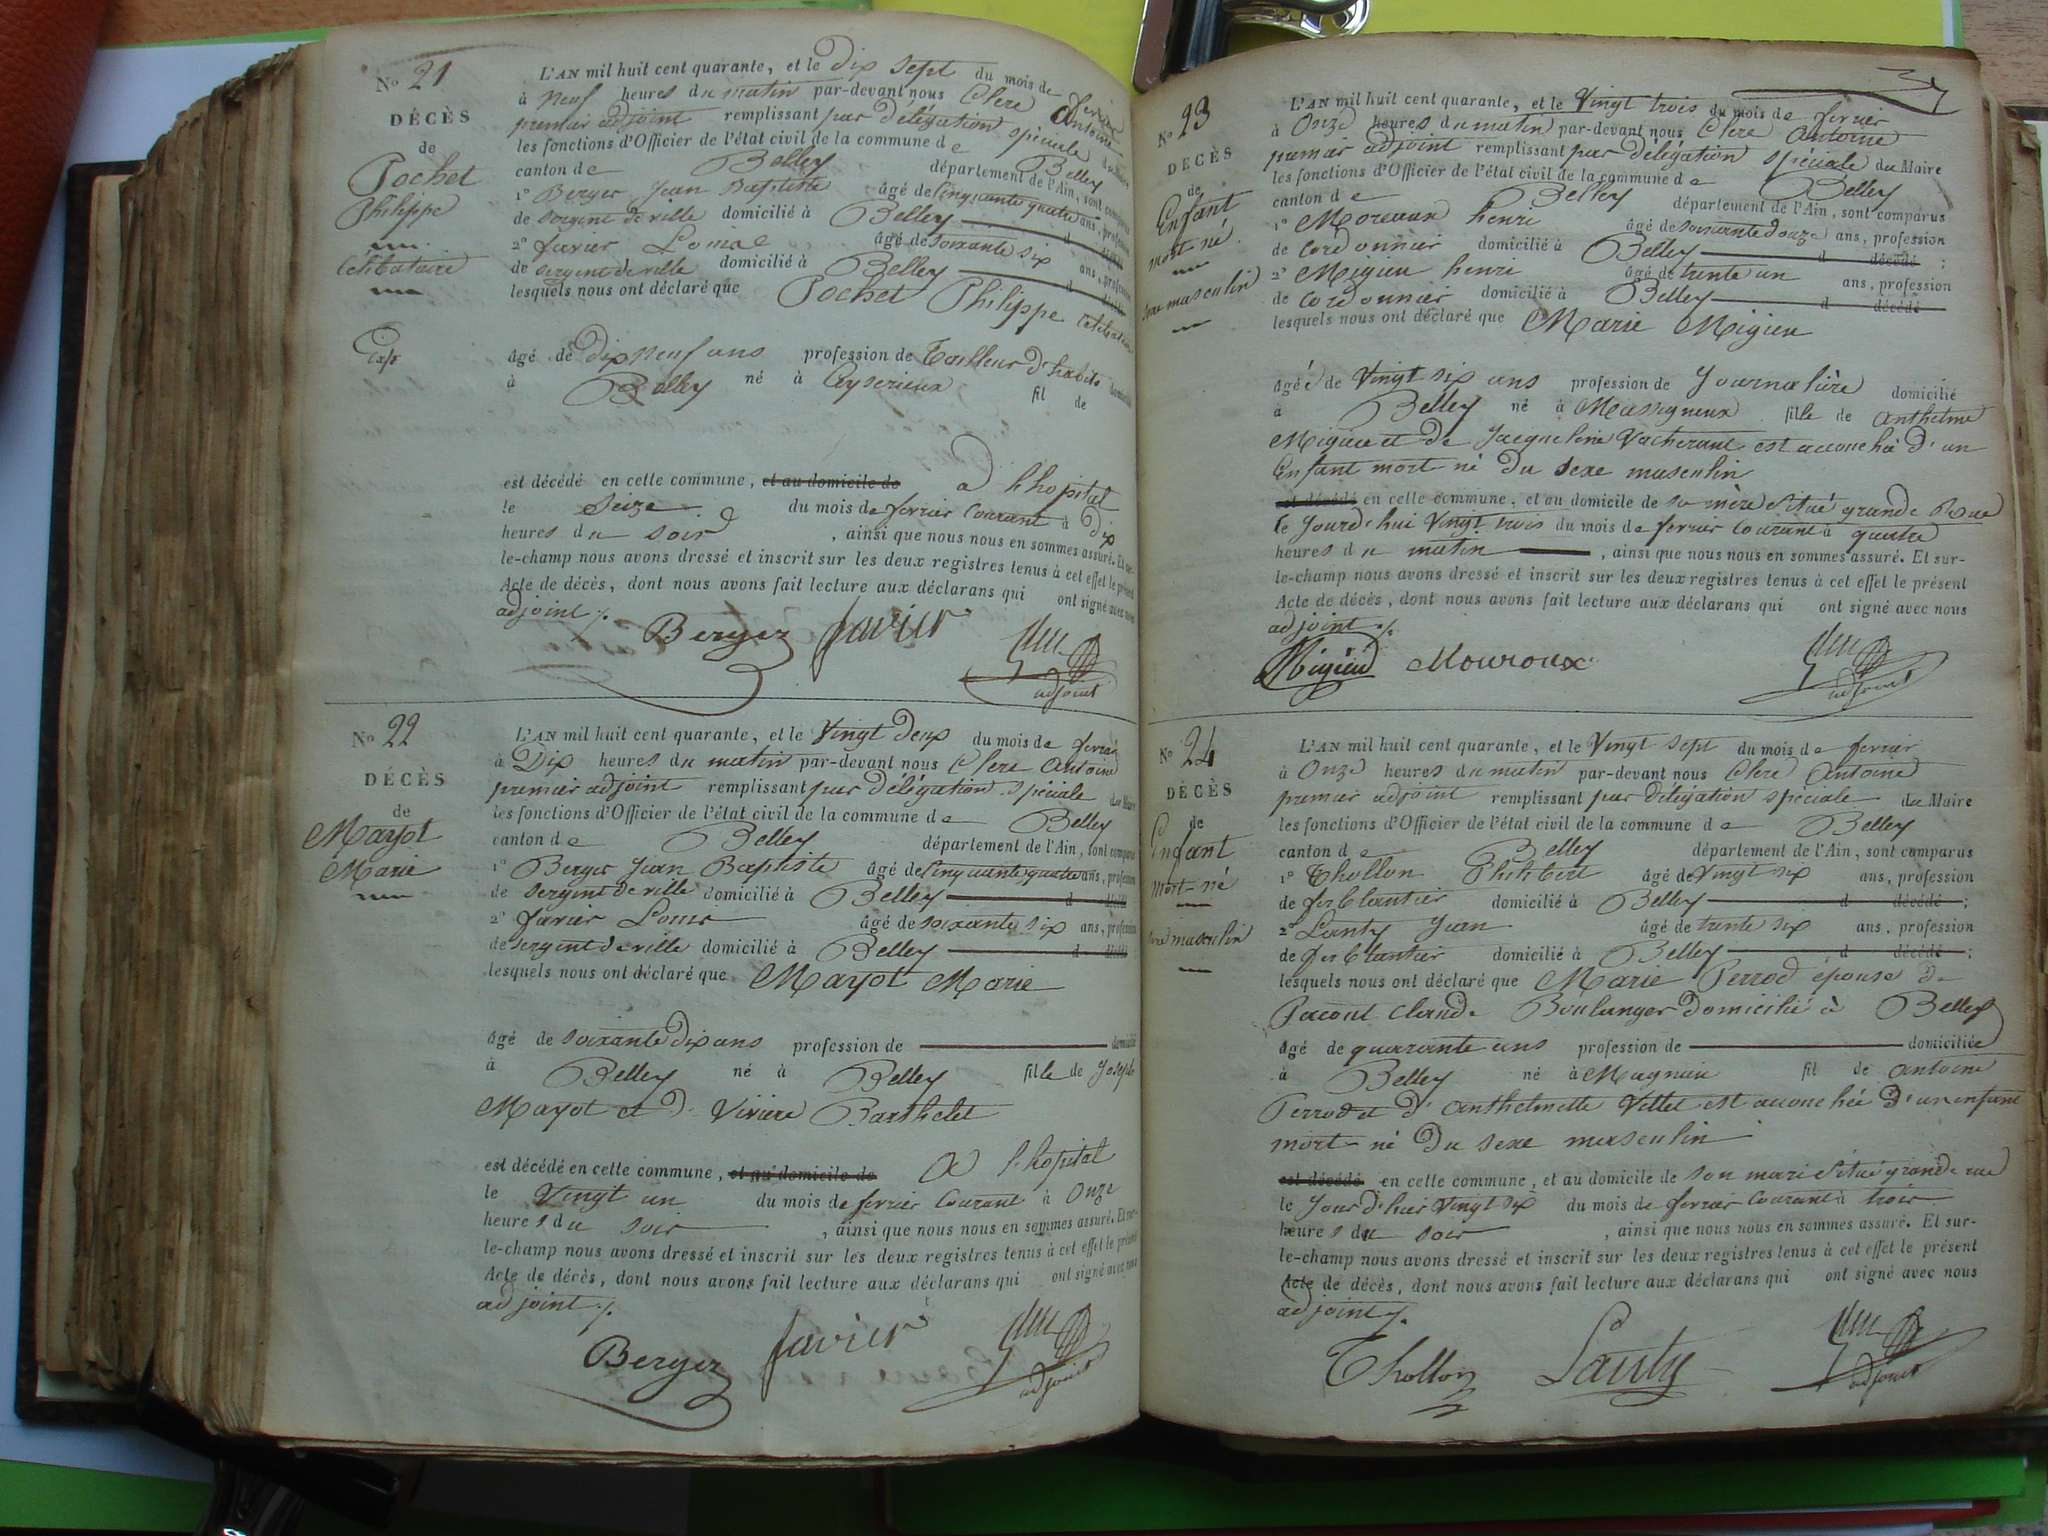 No 21
DÉCÈS
de
Pochet
Philippe
célibataire
Exp
L'AN mil huit cent quarante, et le dix sept du mois de fevrier
à neuf heures du matin par-devant nous Clere Antoine
premier adjoint remplissant par délégation spéciale du Maire
les fonctions d'Officier de l'état civil de la commune de Belley
canton de Belley département de l'Ain, sont comparus
1º Berger Jean Baptiste âgé de cinquante quatre ans, profession
de sergent de ville domicilié à Belley d décédé
2º favier Louis âgé de soixante six ans, profession
de sergent de ville domicilié à Belley d décédé
lesquels nous ont déclaré que Pochet Philippe célibataire
âgé de dix neuf ans profession de Tailleur d'habits domicilié
à Belley né à Ceyserieux fil de
est décédé en cette commune, et au domicile de a l'hopital
le Seize du mois de fevrier courant à dix
heures du soir, ainsi que nous nous en sommes assuré. Et sur-
le-champ nous avons dressé et inscrit sur les deux registres tenus à cet effet le présent
Acte de décès, dont nous avons fait lecture aux déclarans qui ont signé avec nous
adjoint ./.
Berger favier
adjoint
No 22
DÉCÈS
de
Mayot
Marie
L'AN mil huit cent quarante, et le Vingt deux du mois de fevrier
à Dix heures du matin par-devant nous Clere Antoine
premier adjoint remplissant par délégation spéciale du Maire
les fonctions d'Officier de l'état civil de la commune de Belley
canton de Belley département de l'Ain, sont comparus
1º Berger Jean Baptiste âgé de cinquante quatre ans, profession
de sergent de ville domicilié à Belley d décédé
2º favier Louis âgé de soixante six ans, profession
de sergent de ville domicilié à Belley d décédé
lesquels nous ont déclaré que Mayot Marie
âgé de soixante dix ans profession de domicilié
à Belley né à Belley fille de Joseph
Mayot et d. Viviere Barthelet
est décédé en cette commune, et au domicile de a l'hopital
le Vingt un du mois de fevrier courant à onze
heures du soir, ainsi que nous nous en sommes assuré. Et sur-
le-champ nous avons dressé et inscrit sur les deux registres tenus à cet effet le présent
Acte de décès, dont nous avons fait lecture aux déclarans qui ont signé avec nous
adjoint ./.
Berger favier
adjoint
No 23
DÉCÈS
de
Enfant
mort-né
sexe masculin
L'AN mil huit cent quarante, et le Vingt trois du mois de fevrier
à Onze heures du matin par-devant nous Clere Antoine
premier adjoint remplissant par délégation spéciale du Maire
les fonctions d'Officier de l'état civil de la commune de Belley
canton de Belley département de l'Ain, sont comparus
1º Moreaux henri âgé de soixante douze ans, profession
de Cordonnier domicilié à Belley d décédé ;
2º Migieu henri âgé de trente un ans, profession
de Cordonnier domicilié à Belley d décédé
lesquels nous ont déclaré que Marie Migieu
âgée de Vingt six ans profession de Journalière domicilié
à Belley né à Massigneux fille de anthelme
Migieu et de Jacqueline Vacherant est accouchée d'un
Enfant mort-né du sexe masculin
est décédé en cette commune, et au domicile de sa mère situé grande Rue
le Jourdehui Vingt trois du mois de fevrier courant à quatre
heures du matin, ainsi que nous nous en sommes assuré. Et sur-
le-champ nous avons dressé et inscrit sur les deux registres tenus à cet effet le présent
Acte de décès, dont nous avons fait lecture aux déclarans qui ont signé avec nous
adjoint ./.
Migieu Mouroux
adjoint
No 24
DÉCÈS
de
Enfant
mort-né
sexe masculin
L'AN mil huit cent quarante, et le Vingt sept du mois de fevrier
à Onze heures du matin par-devant nous Clere Antoine
premier adjoint remplissant par délégation spéciale du Maire
les fonctions d'Officier de l'état civil de la commune de Belley
canton de Belley département de l'Ain, sont comparus
1º Thollon Philibert âgé de vingt six ans, profession
de ferblantier domicilié à Belley d décédé ;
2º Lanty Jean âgé de trente six ans, profession
de ferblantier domicilié à Belley d décédé ;
lesquels nous ont déclaré que Marie Perrod épouse de
Pacout claude Boulanger domicilié à Belley
âgé de quarante ans profession de domiciliée
à Belley né à Magnieu fil de antoine
Perrod et d'anthelmette Vettet est accouchée d'un enfant
mort-né du sexe masculin
est décédé en cette commune, et au domicile de son mari situé grande rue
le Jour d'hier vingt six du mois de fevrier courant à trois
heures du soir, ainsi que nous nous en sommes assuré. Et sur-
le-champ nous avons dressé et inscrit sur les deux registres tenus à cet effet le présent
Acte de décès, dont nous avons fait lecture aux déclarans qui ont signé avec nous
adjoint ./.
Thollon Lanty
adjoint